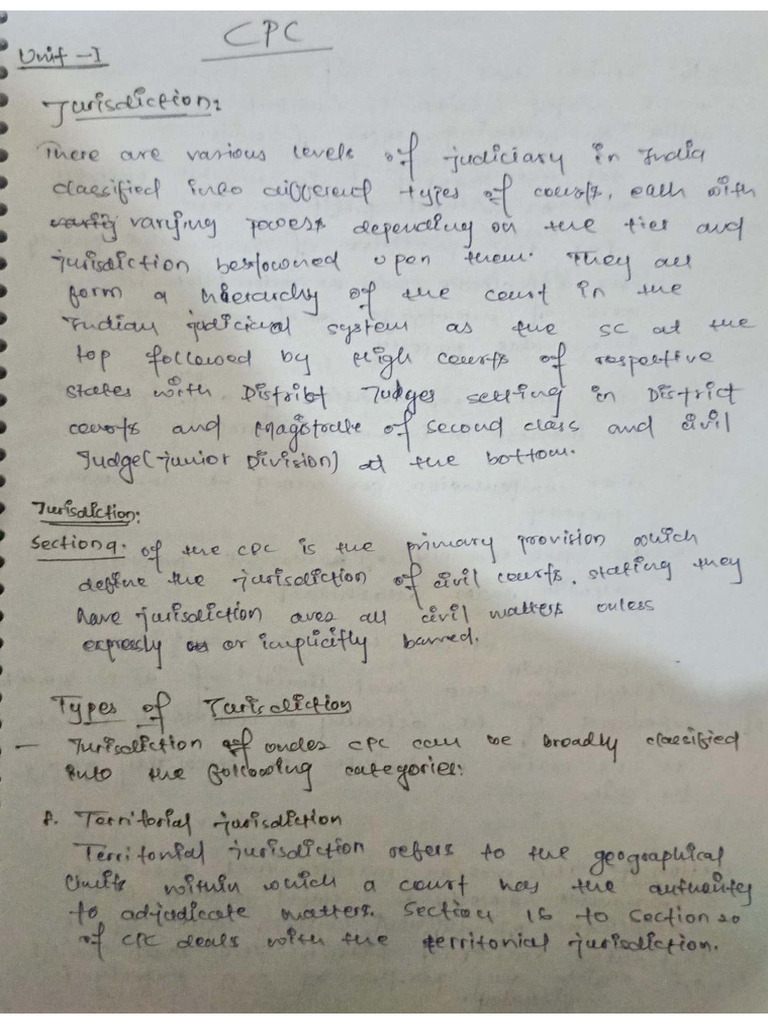 CPC
Unit - I
Jurisdiction:
There are various levels of judiciary in India
classified into different types of courts, each with
varying powers depending on the tier and
jurisdiction bestowned upon them. They all
form a hierarchy of the court in the
Indian judicial system as the SC at the
top followed by High courts of respective
states with District Judges setting in District
courts and Magistrate of second class and civil
Judge (junior Division) at the bottom.
Jurisdiction:
Section 9: of the CPC is the primary provision which
define the jurisdiction of civil courts, stating they
have jurisdiction over all civil matters unless
expressly or implicitly barred.
Types of Jurisdiction
- Jurisdiction under CPC can be broadly classified
into the following categories:
A. Territorial jurisdiction
Territorial jurisdiction refers to the geographical
limits within which a court has the authority
to adjudicate matters. Section 16 to Section 20
of CPC deals with the territorial jurisdiction.